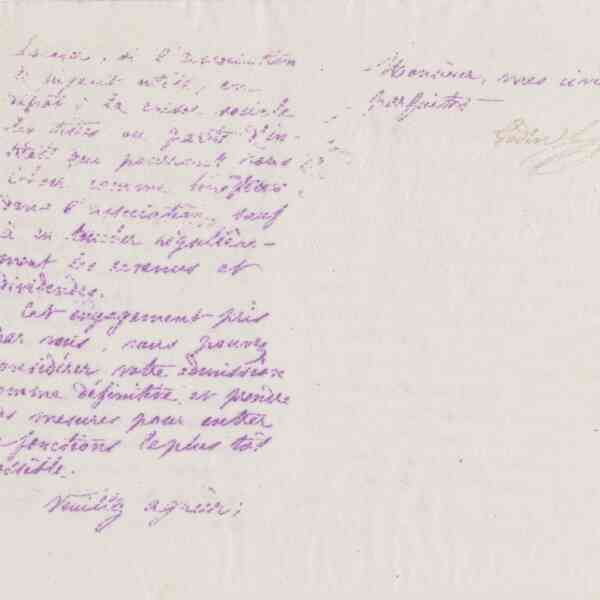 si l'association
argent
dépôt; la caisse sociale
les titres ou parts d'in-
que pourrait vous
comme bénéfices
dans l'association, sauf
à en toucher régulière-
ment les revenus et
dividendes.
Cet engagement pris
par vous, vous pouvez
considérer votre admission
comme définitive et prendre
les mesures pour entrer
fonctions le plus tôt
possible.
Veuillez agréer,
Monsieur, mes
parfaites
Godin